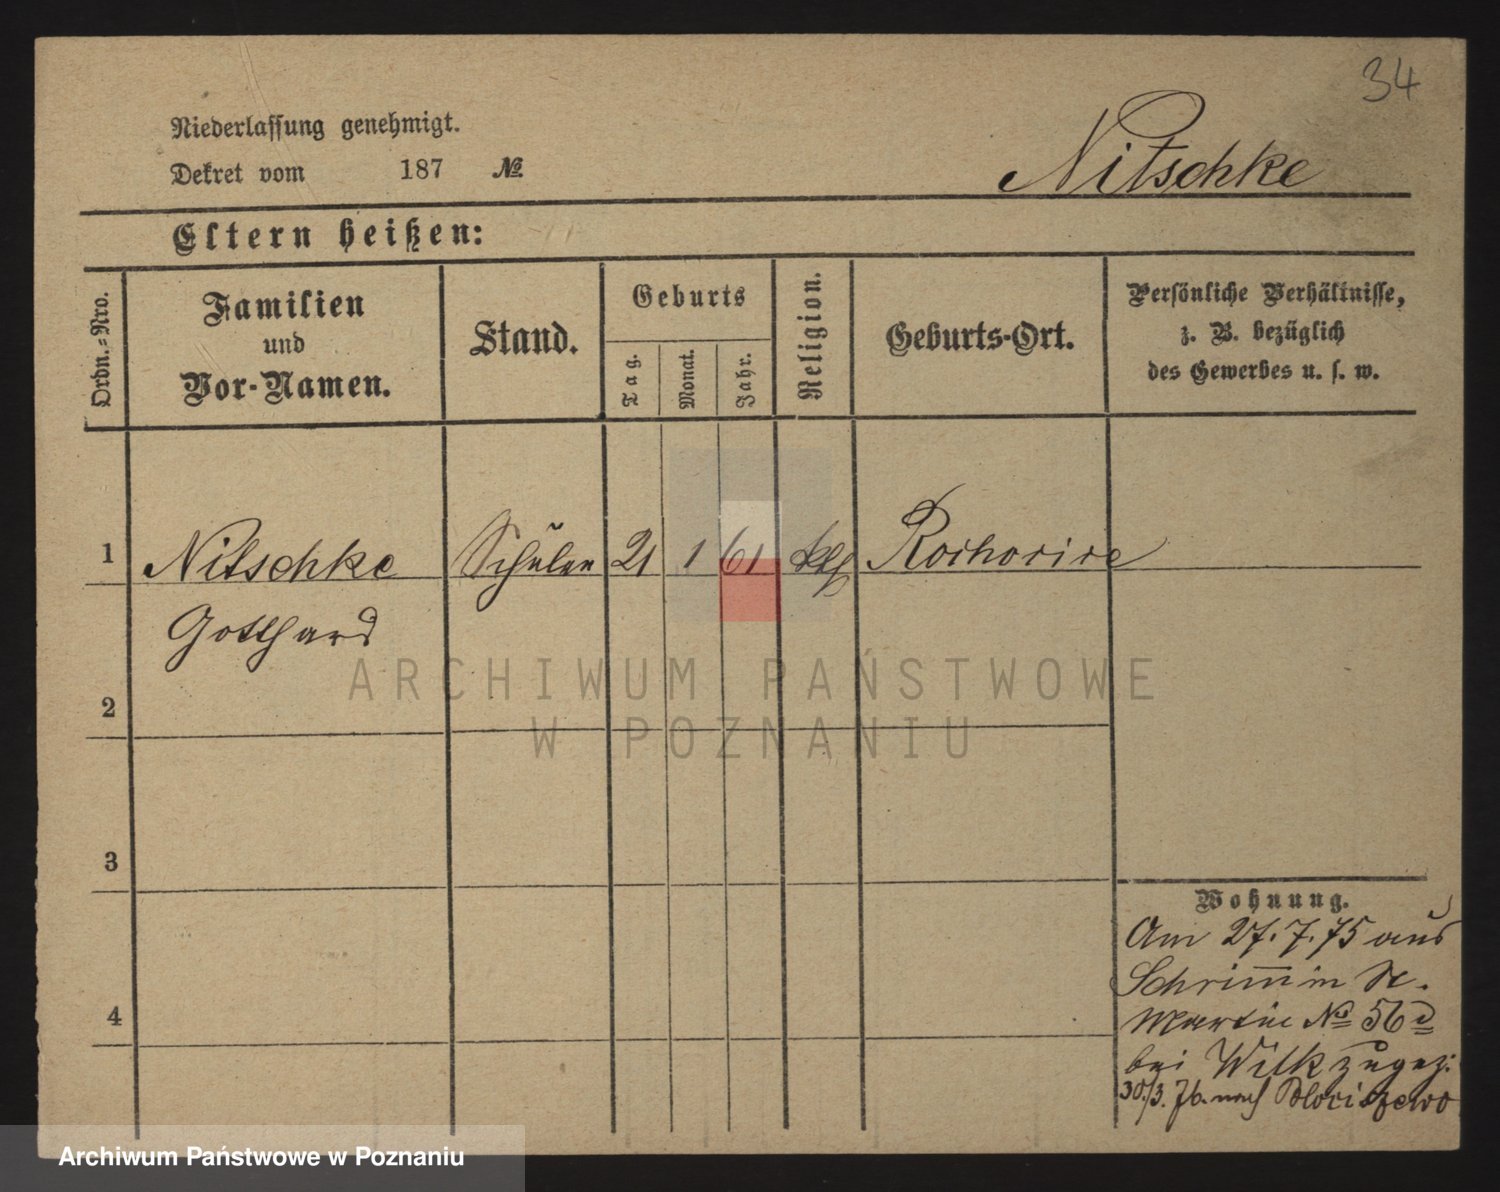 34
Niederlassung genehmigt.
Dekret vom 187 №
Nitschke
Eltern heißen:
Ordn.-Nro.
Familien
und
Vor-Namen.
Stand.
Geburts
Tag.
Monat.
Jahr.
Religion.
Geburts-Ort.
Persönliche Verhältnisse,
z. B. bezüglich
des Gewerbes u. s. w.
1 Nitschke Schüler 21 1 61
Gotthard
2
3
4
Wohnung.
Am 27. 7. 75 aus
Schrimm in St.
Martin № 56 d
bei Wilk zugez.
30./3. 76. nach
ARCHIWUM PAŃSTWOWE
W POZNANIU
Archiwum Państwowe w Poznaniu